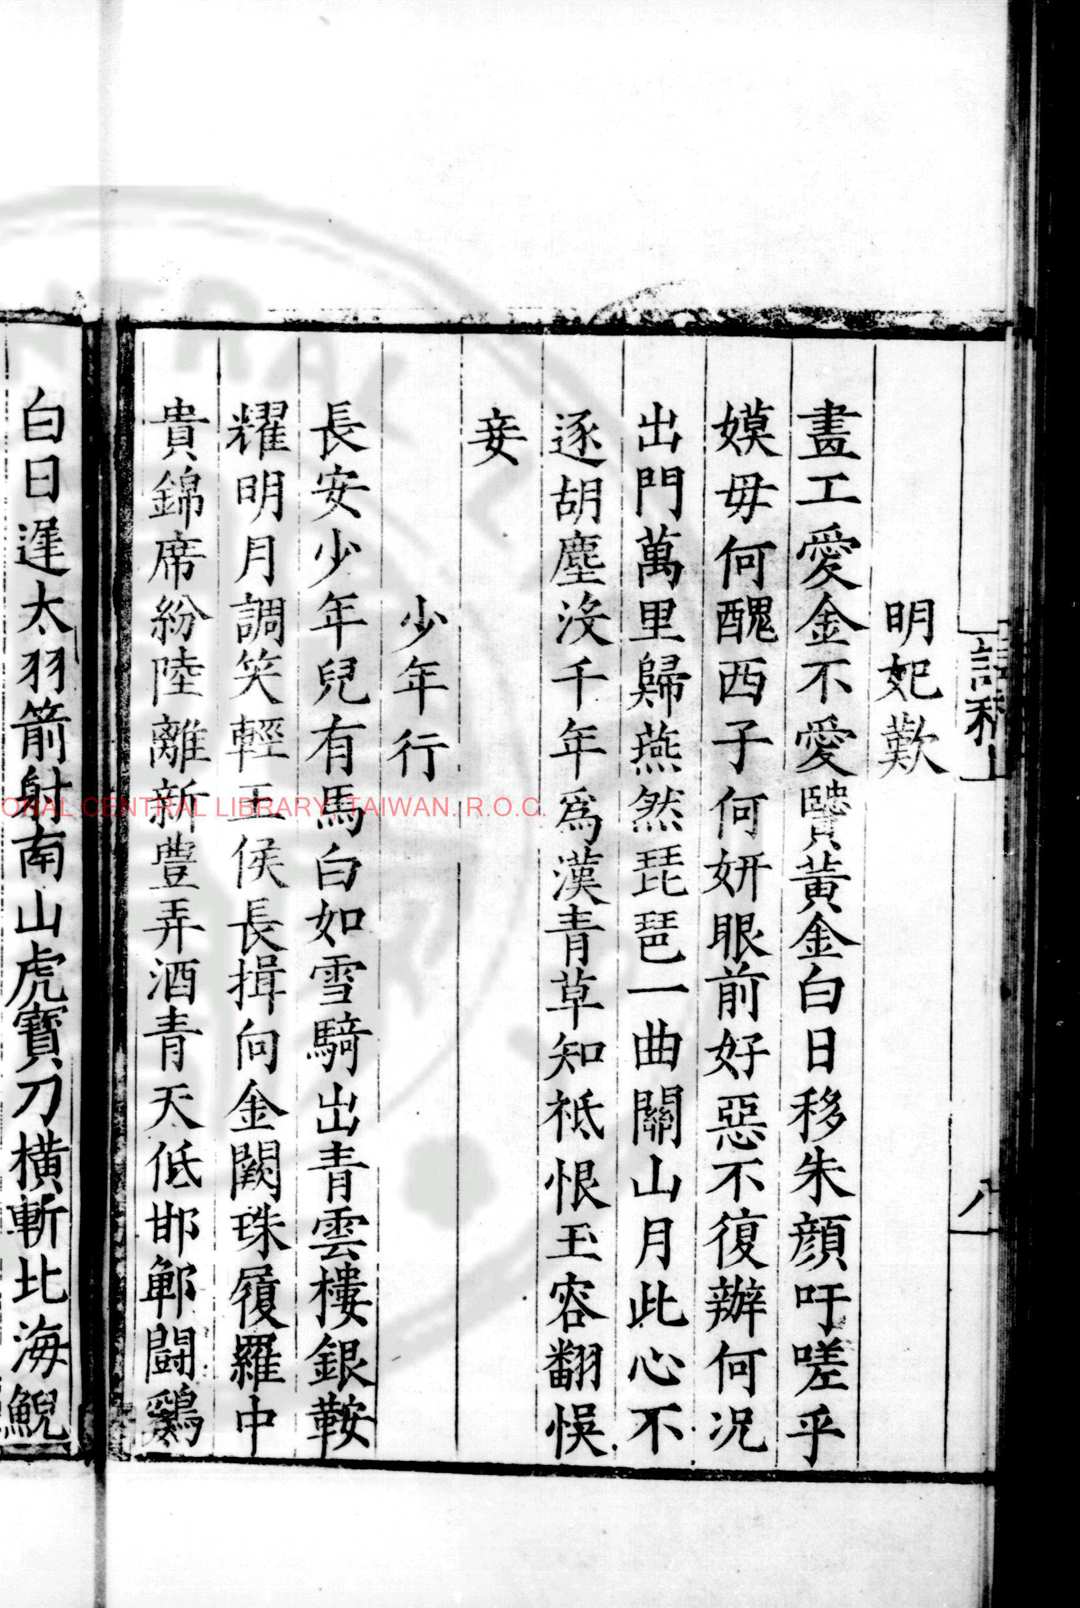 詩稿上
八
明妃歎
畫工愛金不愛贒黃金白日移朱顔吁嗟乎
嫫毋何醜西子何妍眼前好惡不復辦何况
出門萬里歸燕然琵琶一曲關山月此心不
逐胡塵沒千年爲漢青草知祗恨玉容翻悮
妾
少年行
長安少年兒有馬白如雪騎出青雲樓銀鞍
耀明月調笑輕王侯長揖向金闕珠履羅中
貴錦席紛陸離新豊弄酒青天低邯鄲闘鷄
白日遲太羽箭射南山虎寶刀橫斬北海鯢
NATIONAL CENTRAL LIBRARY, TAIWAN. R.O.C.